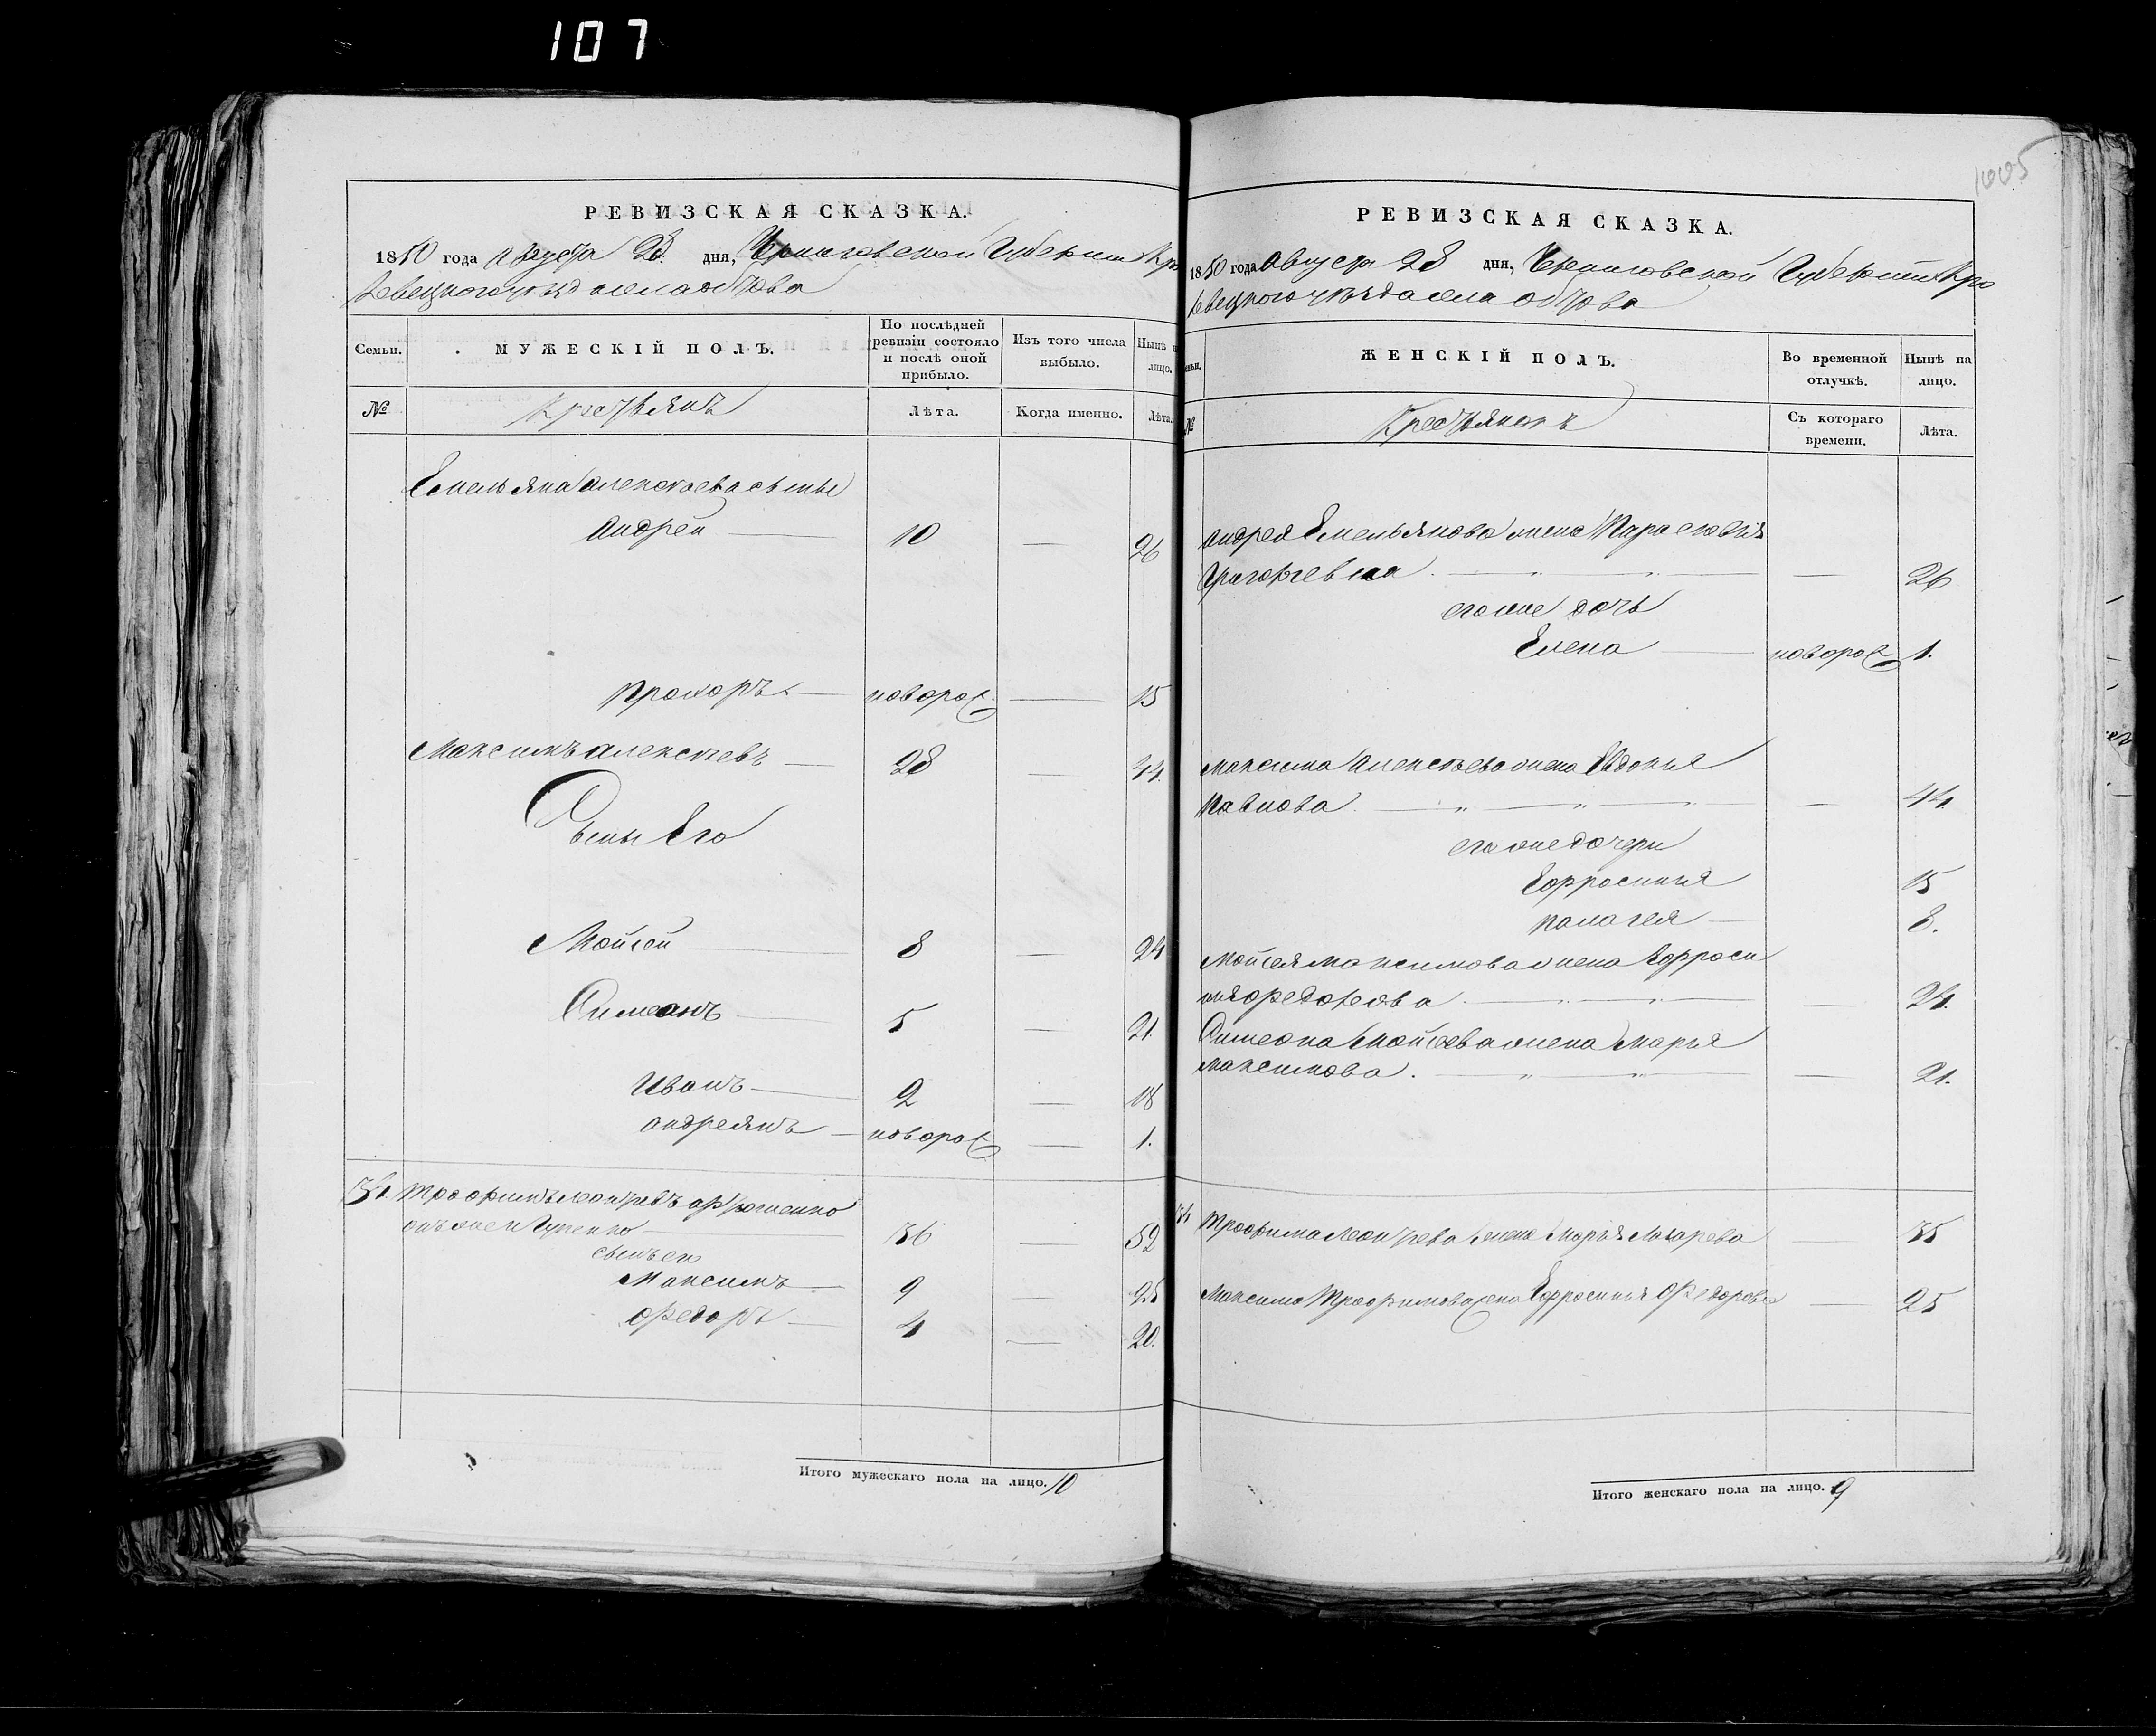 107
1005
РЕВИЗСКАЯ СКАЗКА.
1850 года Августа 28 дня, Черниговской Губернии Кро
левецкого уезда села обтова
Семьи.
МУЖЕСКІЙ ПОЛЪ.
По послѣдней ревизіи состояло и послѣ оной прибыло.
Изъ того числа выбыло.
Нынѣ на лицо.
№
Крестьянъ
Лѣта.
Когда именно.
Лѣта.
Емельяна алексѣева сыны
андрей — 10 — 26
прохоръ — новорож — 15
Максимъ алексѣевъ — 28 — 44.
Сыны Его
Мойсей — 8 — 24
Симеонъ — 5 — 21.
Иванъ — 2 — 18
андреянъ — новорож — 1.
Трофимъ Леонтьевъ
36 — 52
сынъ его
Максимъ — 9 — 25
федоръ — 4 — 20.
Итого мужескаго пола на лицо. 10
РЕВИЗСКАЯ СКАЗКА.
1850 года Августа 28 дня, Черниговской Губернии Кро
левецкого уезда села обтова
ЖЕНСКІЙ ПОЛЪ.
Во временной отлучкѣ.
Нынѣ на лицо.
№
Крестьянокъ
Съ котораго времени.
Лѣта.
андрея Емельянова жена Параскевия
Григорьевна — 26
его же дочь
Елена — новорож 1.
максима Алексѣева жена Евдокия
Павлова. — 44.
его же дочери
Ефросиния 15
палагея — 8.
мойсея максимова жена Ефроси
ния федорова — 24.
Симеона Мойсеева жена Марья
максимова. — 21.
Трофима Леонтьева жена Марья Лазарева —
Максима Трофимова жена Ефросинья федорова — 25
Итого женскаго пола на лицо. 9